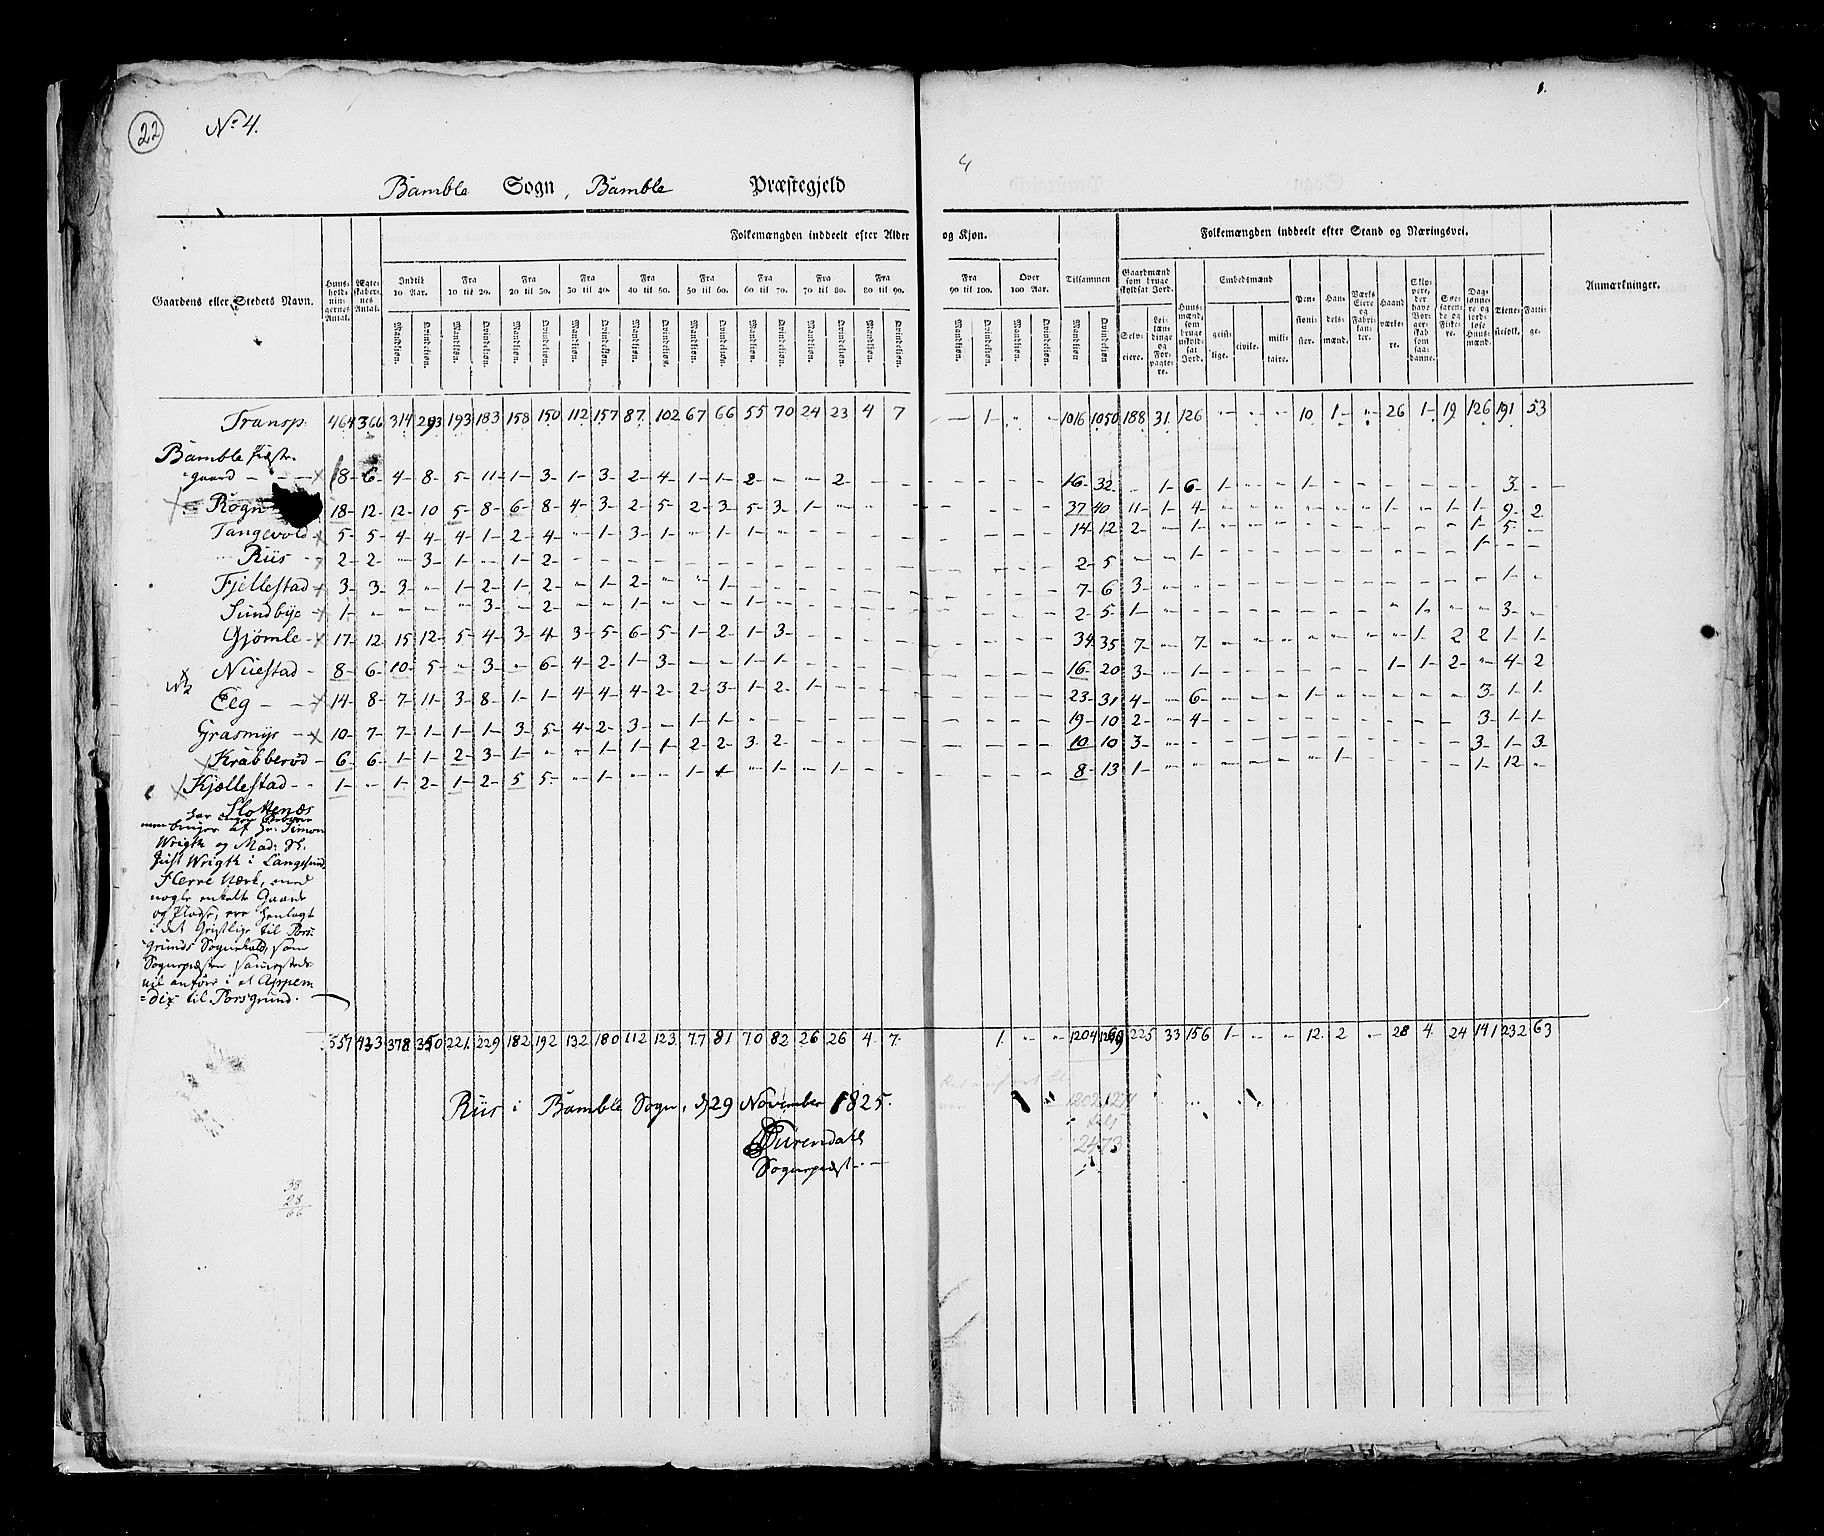 22
No 4.
4
Bamble Sogn, Bamble Præstegjeld
Folkemængden inddeelt efter Alder og Kjøn.
Folkemængden inddeelt efter Stand og Næringsvei.
Gaardens eller Stedets Navn.
Huusholdningernes Antal.
Ægteskabernes Antal.
Indtil 10 Aar.
Fra 10 til 20.
Fra 20 til 30.
Fra 30 til 40.
Fra 40 til 50.
Fra 50 til 60.
Fra 60 til 70.
Fra 70 til 80.
Fra 80 til 90.
Fra 90 til 100.
Over 100 Aar.
Tilsammen
Mandkjøn. Qvindekjøn.
Gaardmænd som bruge skyldsat Jord.
Selveiere.
Leilændinge og Forpagtere.
Huusmænd, som bruge uskyldsat Jord.
Embedsmænd
geistlige.
civile.
militaire.
Pensionister.
Handelsmænd.
Værks Eiere og Fabrikanter.
Haandværkere.
Tjenestefolk.
Anmærkninger.
Transp. 464 366 314 293 193 183 158 150 112 157 87 102 67 66 55 70 24 23 4 7 — 1 " " 1016 1050 188 31 126 " " " 10 1 " 26 1 19 126 191 53
Bamble Præste
gaard 8 6 4 8 5 11 1 3 1 3 2 4 1 1 2 — — 2 16 32 — 1 6 1 — — 1 3
Rogn 18 12 12 10 5 8 6 8 4 3 2 5 2 3 5 3 1 37 40 11 1 4 1 1 1 9 2
Tangvold 5 5 4 4 4 1 2 4 " 1 3 1 " 1 1 14 12 2 " 1 1 5
Riis 2 2 " 3 1 " 1 2 2 5 1 1
Fjellestad 3 3 3 " 1 2 1 2 " 1 2 " " 1 7 6 3 1
Sundbye 1 3 2 1 1 2 5 1 1 3
Gjömle 17 12 15 12 5 4 3 4 3 5 6 5 1 2 1 3 34 35 7 " 7 1 2 2 1 1
Nüestad 8 6 10 5 — 3 — 6 4 2 1 3 — — 1 1 16 20 3 1 1 1 2 " 4 2
Eeg 14 8 7 11 3 8 1 1 4 4 4 2 2 3 1 2 1 23 31 4 6 1 3 1 1
Grasmyr 10 7 7 1 1 1 3 5 4 2 3 — 1 1 19 10 2 4 3 1 1
Krabberød 6 6 1 1 2 3 1 " " 1 1 1 2 2 3 2 10 10 3 3 1 3
Kjællestad 1 " 1 2 1 2 5 5 " 1 — — 1 + " 1 " 1 8 13 1 1 1 12 "
Slottenæs
har ingen Beboere
men bruges af Hr. Simon
Wrigth og Mad: Sl.
Just Wrigth i Langesund.
Herre Værk, med
nogle enkelte Gaarde
og Pladse, ere henlagt
i det Geistlige til Pors-
grunds Sognekald, som
Sognepræsten sammesteds
vil anføre i et Appen
=dix til Porsgrund.
557 433 378 350 221 229 182 192 132 180 112 123 77 81 70 82 26 26 4 7 1 " " 1204 1269 225 33 156 1 " " 12 2 " 28 4 24 141 232 63
Riis i Bamble Sogn, d 29 November 1825.
Sognepræst
2473
38
28
66